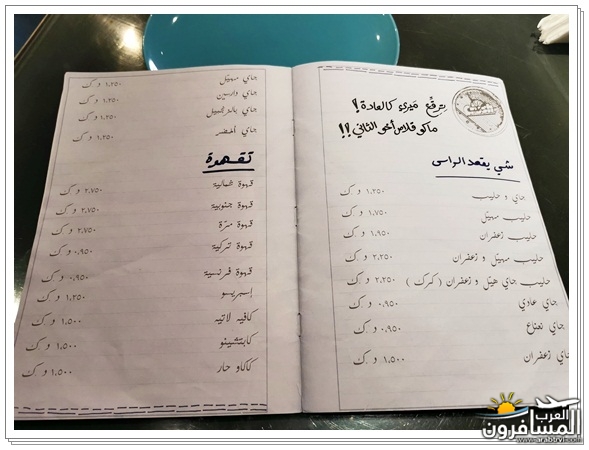 يترقّع مَيري كالعادة!
ماكو قلاس أخو الثاني!!
شي يقعد الراس
جاي و حليب ١,٢٥٠ د.ك
حليب مهيّل ١,٧٥٠ د.ك
حليب زعفران ١,٩٥٠ د.ك
حليب مهيّل و زعفران ٢,٢٥٠ د.ك
حليب جاي هيل و زعفران (كرك) ٢,٢٥٠ د.ك
جاي عادي ٠,٩٥٠ د.ك
جاي نعناع ٠,٩٥٠ د.ك
جاي زعفران ١,٥٠٠ د.ك
جاي مهيّل ١,٢٥٠ د.ك
جاي دارسين ١,٢٥٠ د.ك
جاي بالزنجبيل ١,٢٥٠ د.ك
جاي أخضر ١,٢٥٠ د.ك
تقهوة
قهوة شمالية ٢,٧٥٠ د.ك
قهوة جنوبية ٢,٧٥٠ د.ك
قهوة مرّة ٢,٧٥٠ د.ك
قهوة تركية ٠,٩٥٠ د.ك
قهوة فرنسية ٠,٩٥٠ د.ك
إسبريسو ١,٢٥٠ د.ك
كافيه لاتيه ١,٥٠٠ د.ك
كابتشينو ١,٥٠٠ د.ك
كاكاو حار ١,٥٠٠ د.ك
العرب
المسافرون
www.arabtrvl.com